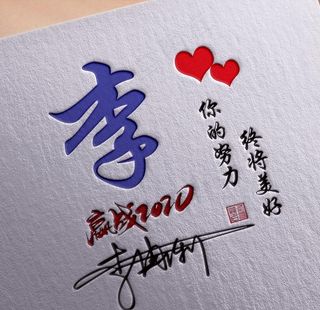 李
赢战2020
你的努力
终将美好